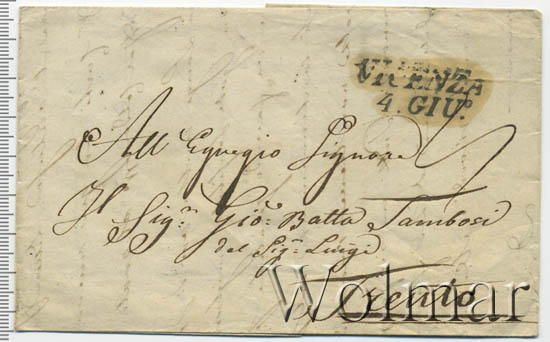 VICENZA
4. GIU.º
All' Egregio Signore
Il Sig.r Gio: Batta Tambosi
del Sig.r Luigi
Trento
Wolmar